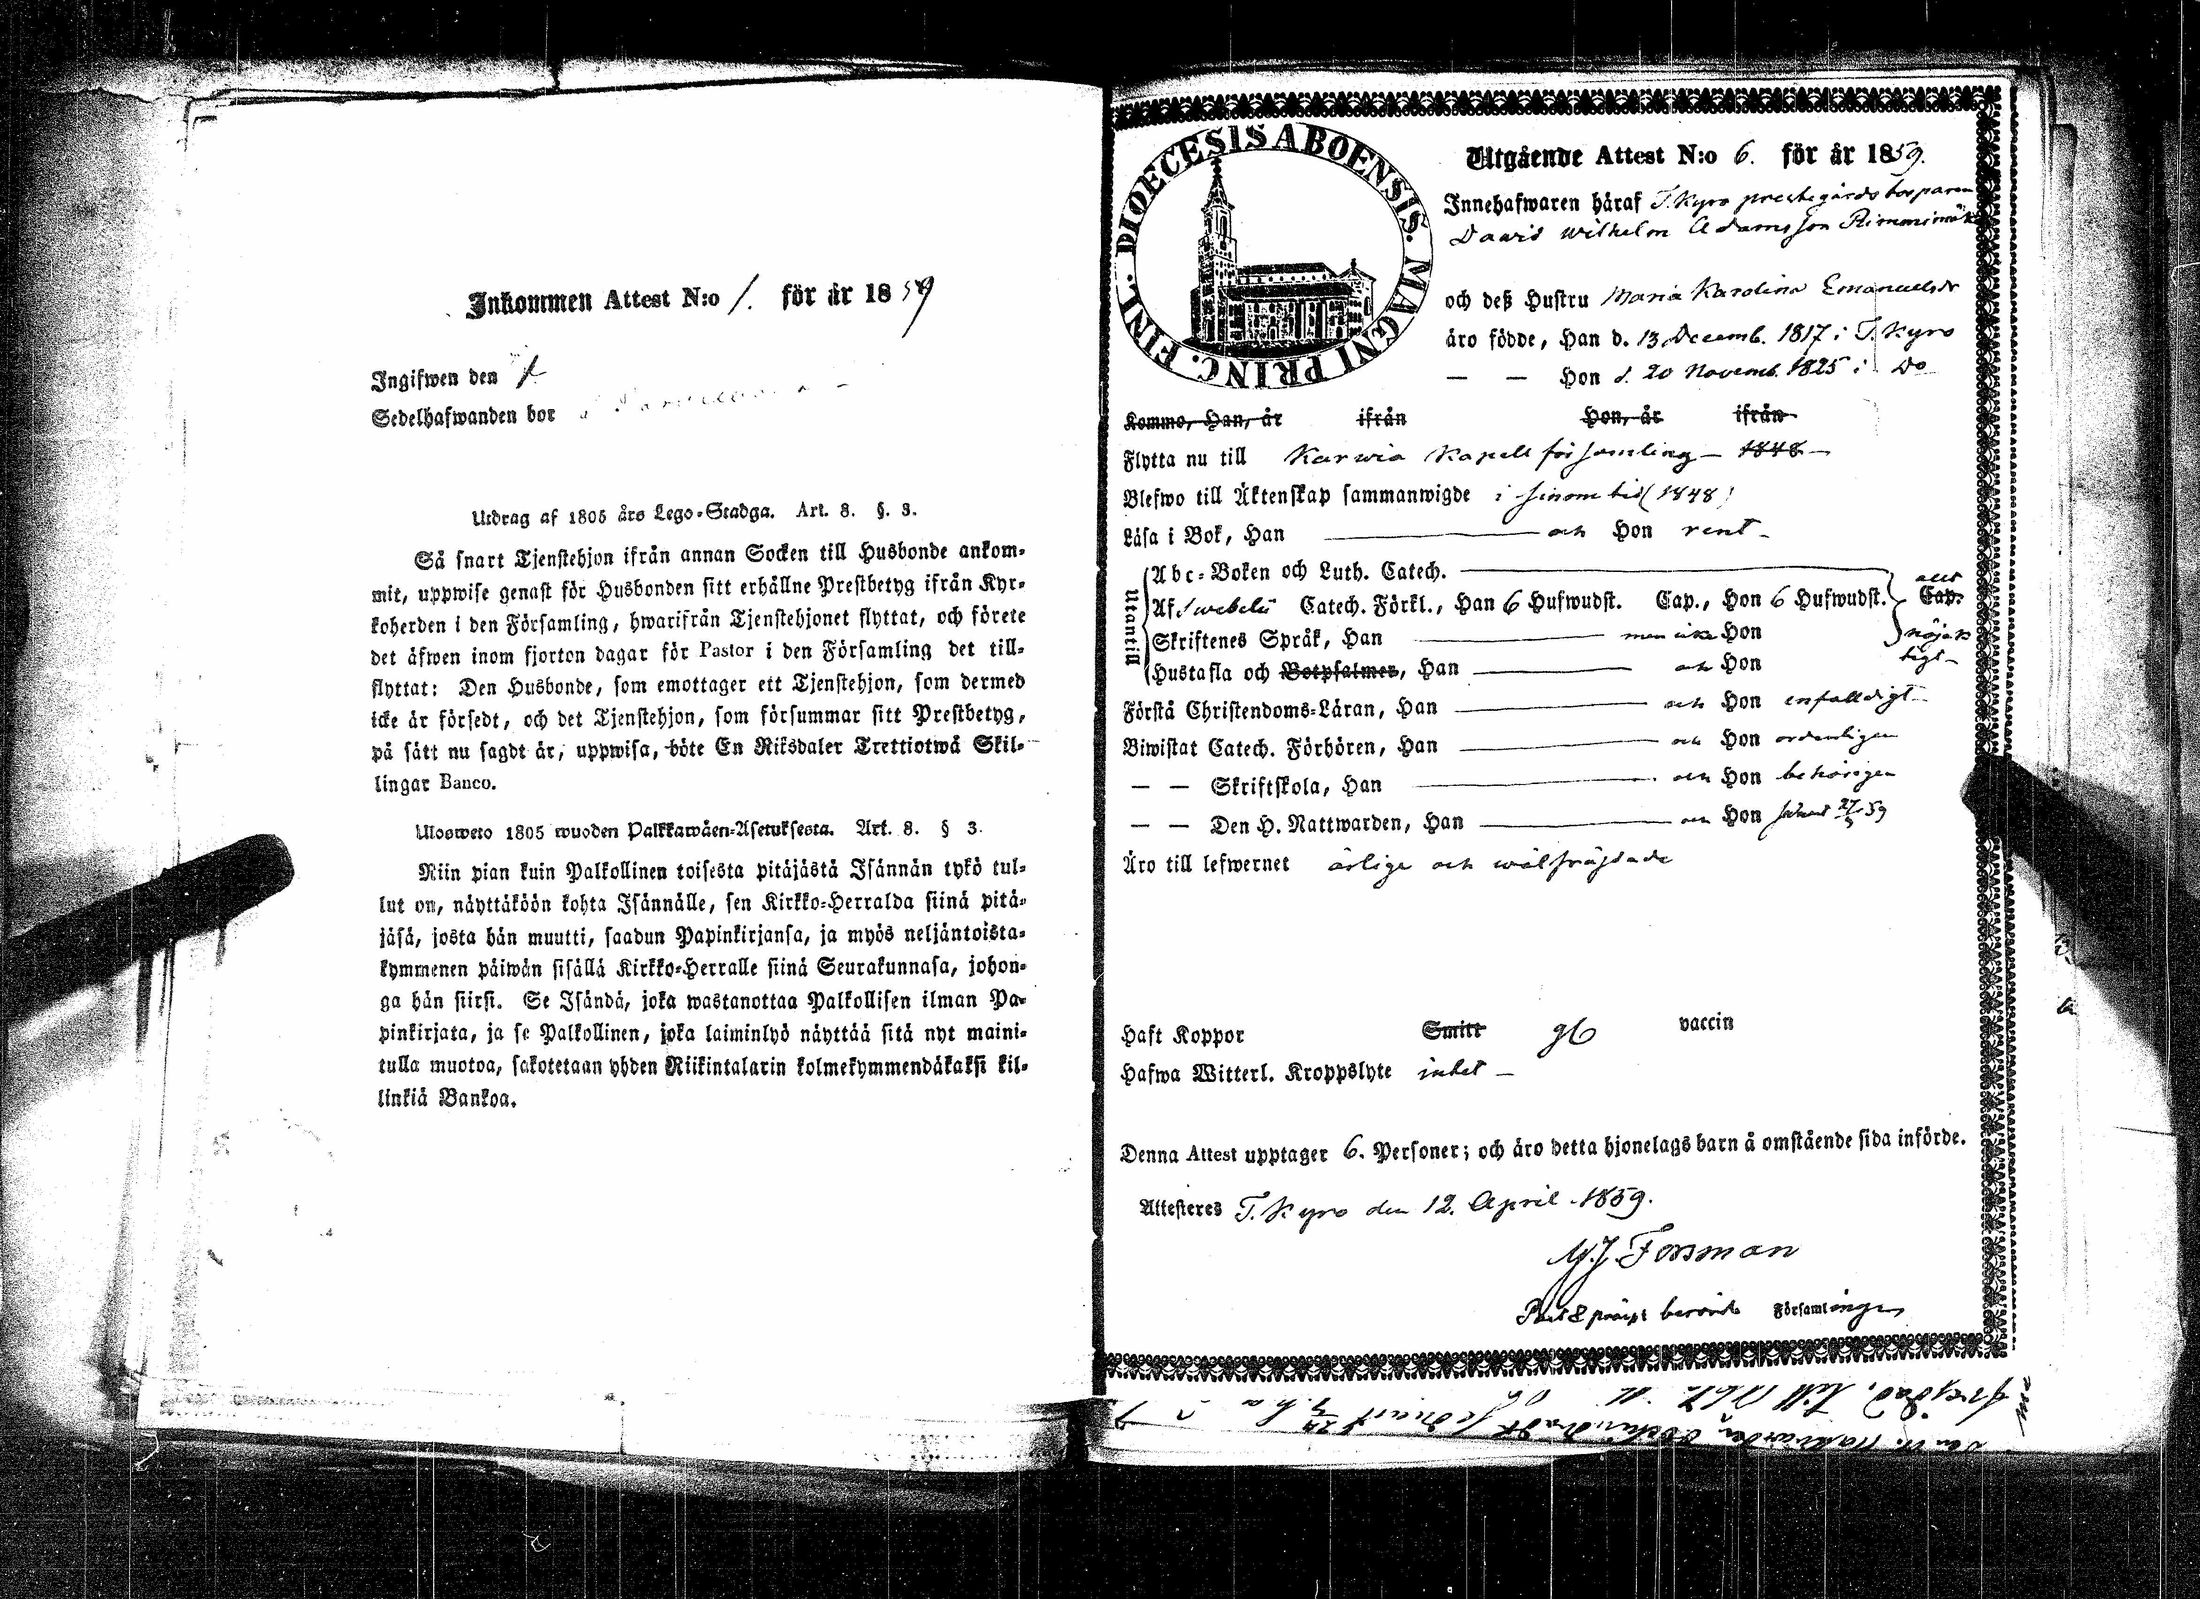 Inkommen Attest N:o 1. för år 1859
Ingifwen den
Sedelhafwanden bor
Utdrag af 1805 års Lego-Stadga. Art. 8. §. 3.
Så snart Tjenstehjon ifrån annan Socken till Husbonde ankom-
mit, uppwise genast för Husbonden sitt erhållne Prestbetyg ifrån Kyr-
koherden i den Församling, hwarifrån Tjenstehjonet flyttat, och förete
det äfwen inom fjorton dagar för Pastor i den Församling det till-
flyttat: Den Husbonde, som emottager ett Tjenstehjon, som dermed
icke är försedt, och det Tjenstehjon, som försummar sitt Prestbetyg,
på sätt nu sagdt är, uppwisa, böte En Riksdaler Trettiotwå Skil-
lingar Banco.
Ulosweto 1805 wuoden Palkkawäen-Asetuksesta. Art. 8. § 3.
Niin pian kuin Palkollinen toisesta pitäjästä Isännän tykö tul-
lut on, näyttäköön kohta Isännälle, sen Kirkko-Herralda siinä pitä-
jäsä, josta hän muutti, saadun Papinkirjansa, ja myös neljäntoista-
kymmenen päiwän sisällä Kirkko-Herralle siinä Seurakunnasa, johon-
ga hän siirsi. Se Isändä, joka wastanottaa Palkollisen ilman Pa-
pinkirjata, ja se Palkollinen, joka laiminlyö näyttää sitä nyt maini-
tulla muotoa, sakotetaan yhden Riikintalarin kolmekymmendäkaksi kil-
linkiä Bankoa.
DIOECESIS ABOENSIS. MAGNI PRINC. FINL.
Utgående Attest N:o 6. för år 1859.
Innehafwaren häraf T.Kyro prestegårds torparen
Dawid Wilhelm Adamsson Rimmimäki
och deß Hustru Maria Karolina Emanuelsdr
äro födde, Han d. 13 Decemb. 1817 i T.Kyro
— — Hon d. 20 Novemb. 1825 i Do
Kommo, Han, år ifrån Hon, år ifrån
Flytta nu till Karwia Kapell församling — 1848 —
Blefwo till Äktenskap sammanwigde i sinom tid (1848)
Läsa i Bok, Han — och Hon rent —
Utantill
Abc-Boken och Luth. Catech. —
Af Swebelii Catech. Förkl., Han 6 Hufwudst. Cap., Hon 6 Hufwudst. Cap.
allt nöjak
tigt —
Skriftenes Språk, Han — men icke Hon
Hustafla och Botpsalmer, Han — och Hon
Förstå Christendoms-Läran, Han — och Hon enfaldigt —
Biwistat Catech. Förhören, Han — och Hon ordentligen
— — Skriftskola, Han — och Hon behörigen
— — Den H. Nattwarden, Han — och Hon senast 27/3 59
Äro till lefwernet ärlige och wälfräjdade
Haft Koppor Smitt gb vaccin
Hafwa Witterl. Kroppslyte intet —
Denna Attest upptager 6. Personer; och äro detta hjonelags barn å omstående sida införde.
Attesteras T.Kyro den 12. April 1859.
Forsman
Församlingen